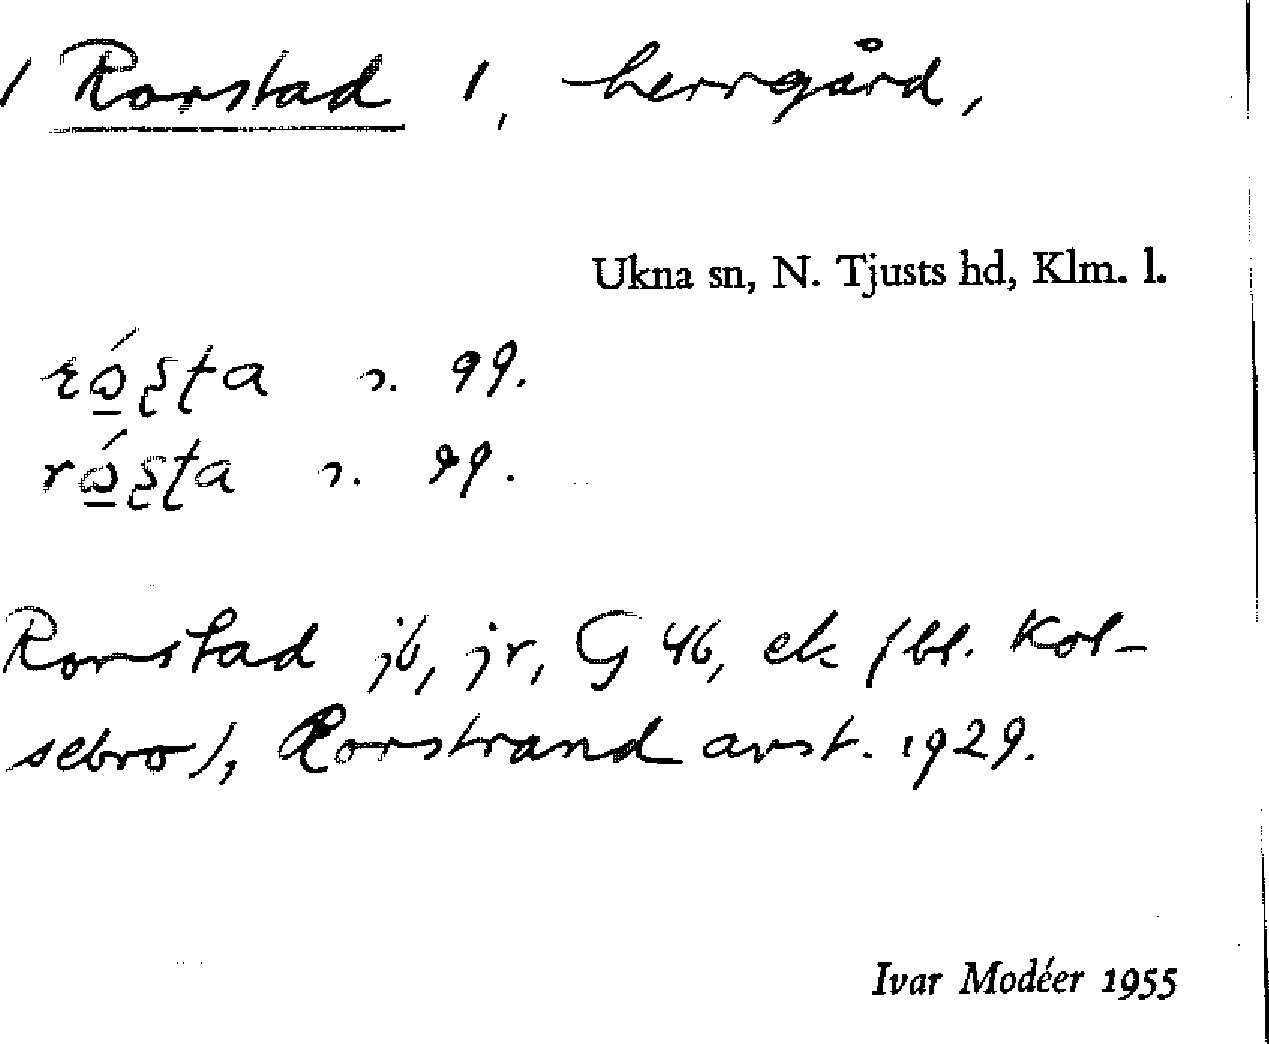 / Rorstad /, herrgård,
Ukna sn, N. Tjusts hd, Klm. l.
99.
99.
Rorstad jb, jr, G 46, ek (bl. Kol-
sebro), Rorstrand avst. 1929.
Ivar Modéer 1955